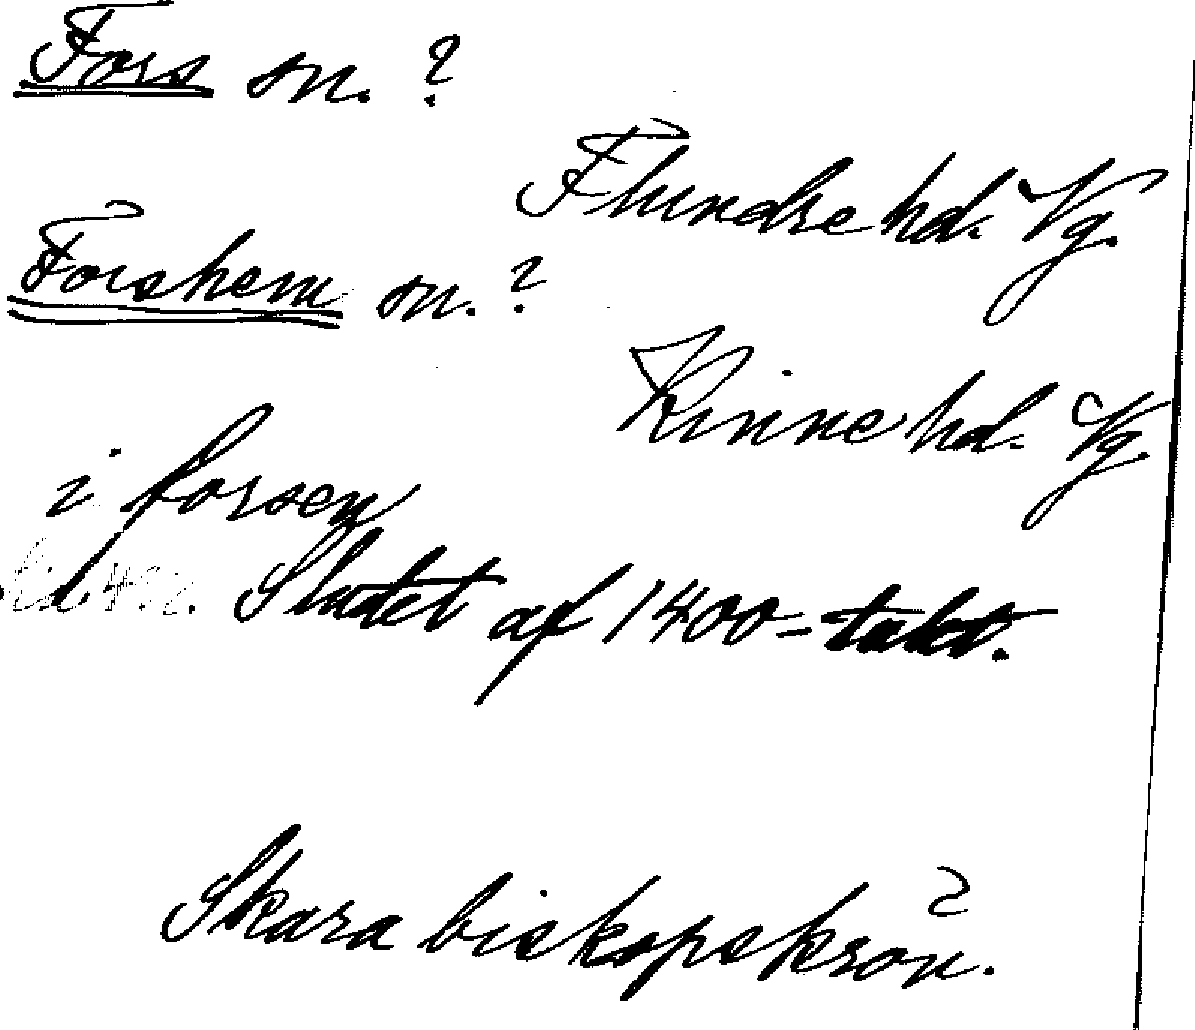 Fors sn. ?
Flundre hd. Vg.
Forshem sn. ?
Kinne hd. Vg.
i forsen
Slutet af 1400-talet.
Skara biskopskrön. 2